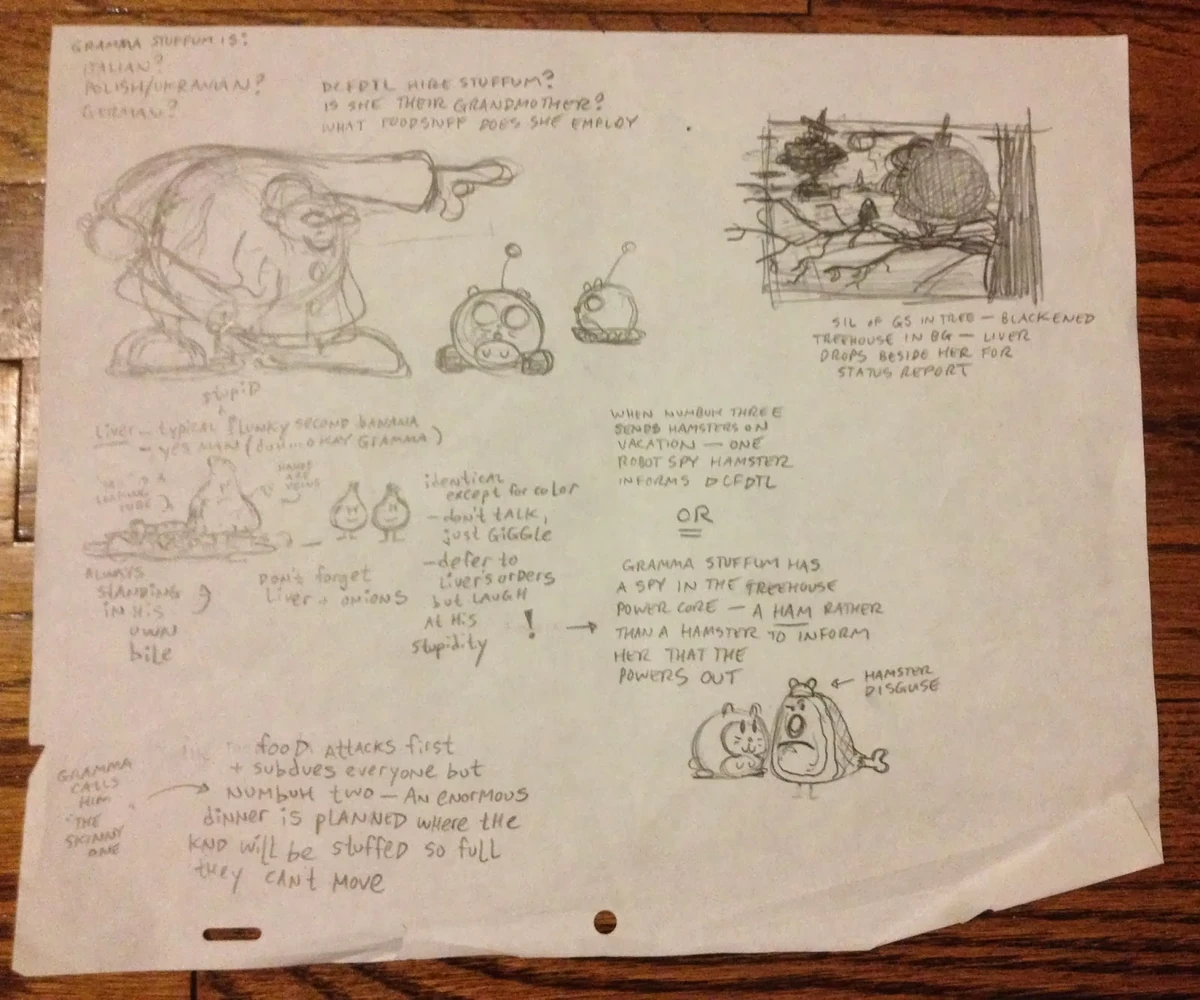 GRAMMA STUFFUM IS:
ITALIAN?
POLISH/UKRANIAN?
GERMAN?
DCFDTL HIRE STUFFUM?
IS SHE THEIR GRANDMOTHER?
WHAT FOODSTUFF DOES SHE EMPLOY
SIL OF GS IN TREE — BLACKENED
TREEHOUSE IN BG — LIVER
DROPS BESIDE HER FOR
STATUS REPORT
stupiD
Liver — typical flunky second banana
— yes MAN (duh...OKAY GRAMMA)
HANDS
ARE
VEINS
ALWAYS
STANDING
IN HIS
OWN
bile
DON't forget
Liver + ONIONS
identical
except for color
— don't tALK,
just GiGGLe
— defer to
Liver's orDers
but LAUGH
At His
stupidity
!
WHEN NUMBUH THREE
SENDS HAMSTERS ON
VACATION — ONE
ROBOT SPY HAMSTER
INFORMS DCFDTL
OR
GRAMMA STUFFUM HAS
A SPY IN THE TREEHOUSE
POWER CORE — A HAM RATHER
THAN A HAMSTER TO INFORM
HER THAT THE
POWERS OUT
HAMSTER
DISGUISE
GRAMMA
CALLS
HIM
"THE
SKINNY
ONE
fooD AttACKS first
+ subdues everyone but
NUMBUH two — AN eNORMOUS
DiNNer is pLANNeD where tHe
KND will be stuffeD so full
they CAN't Move